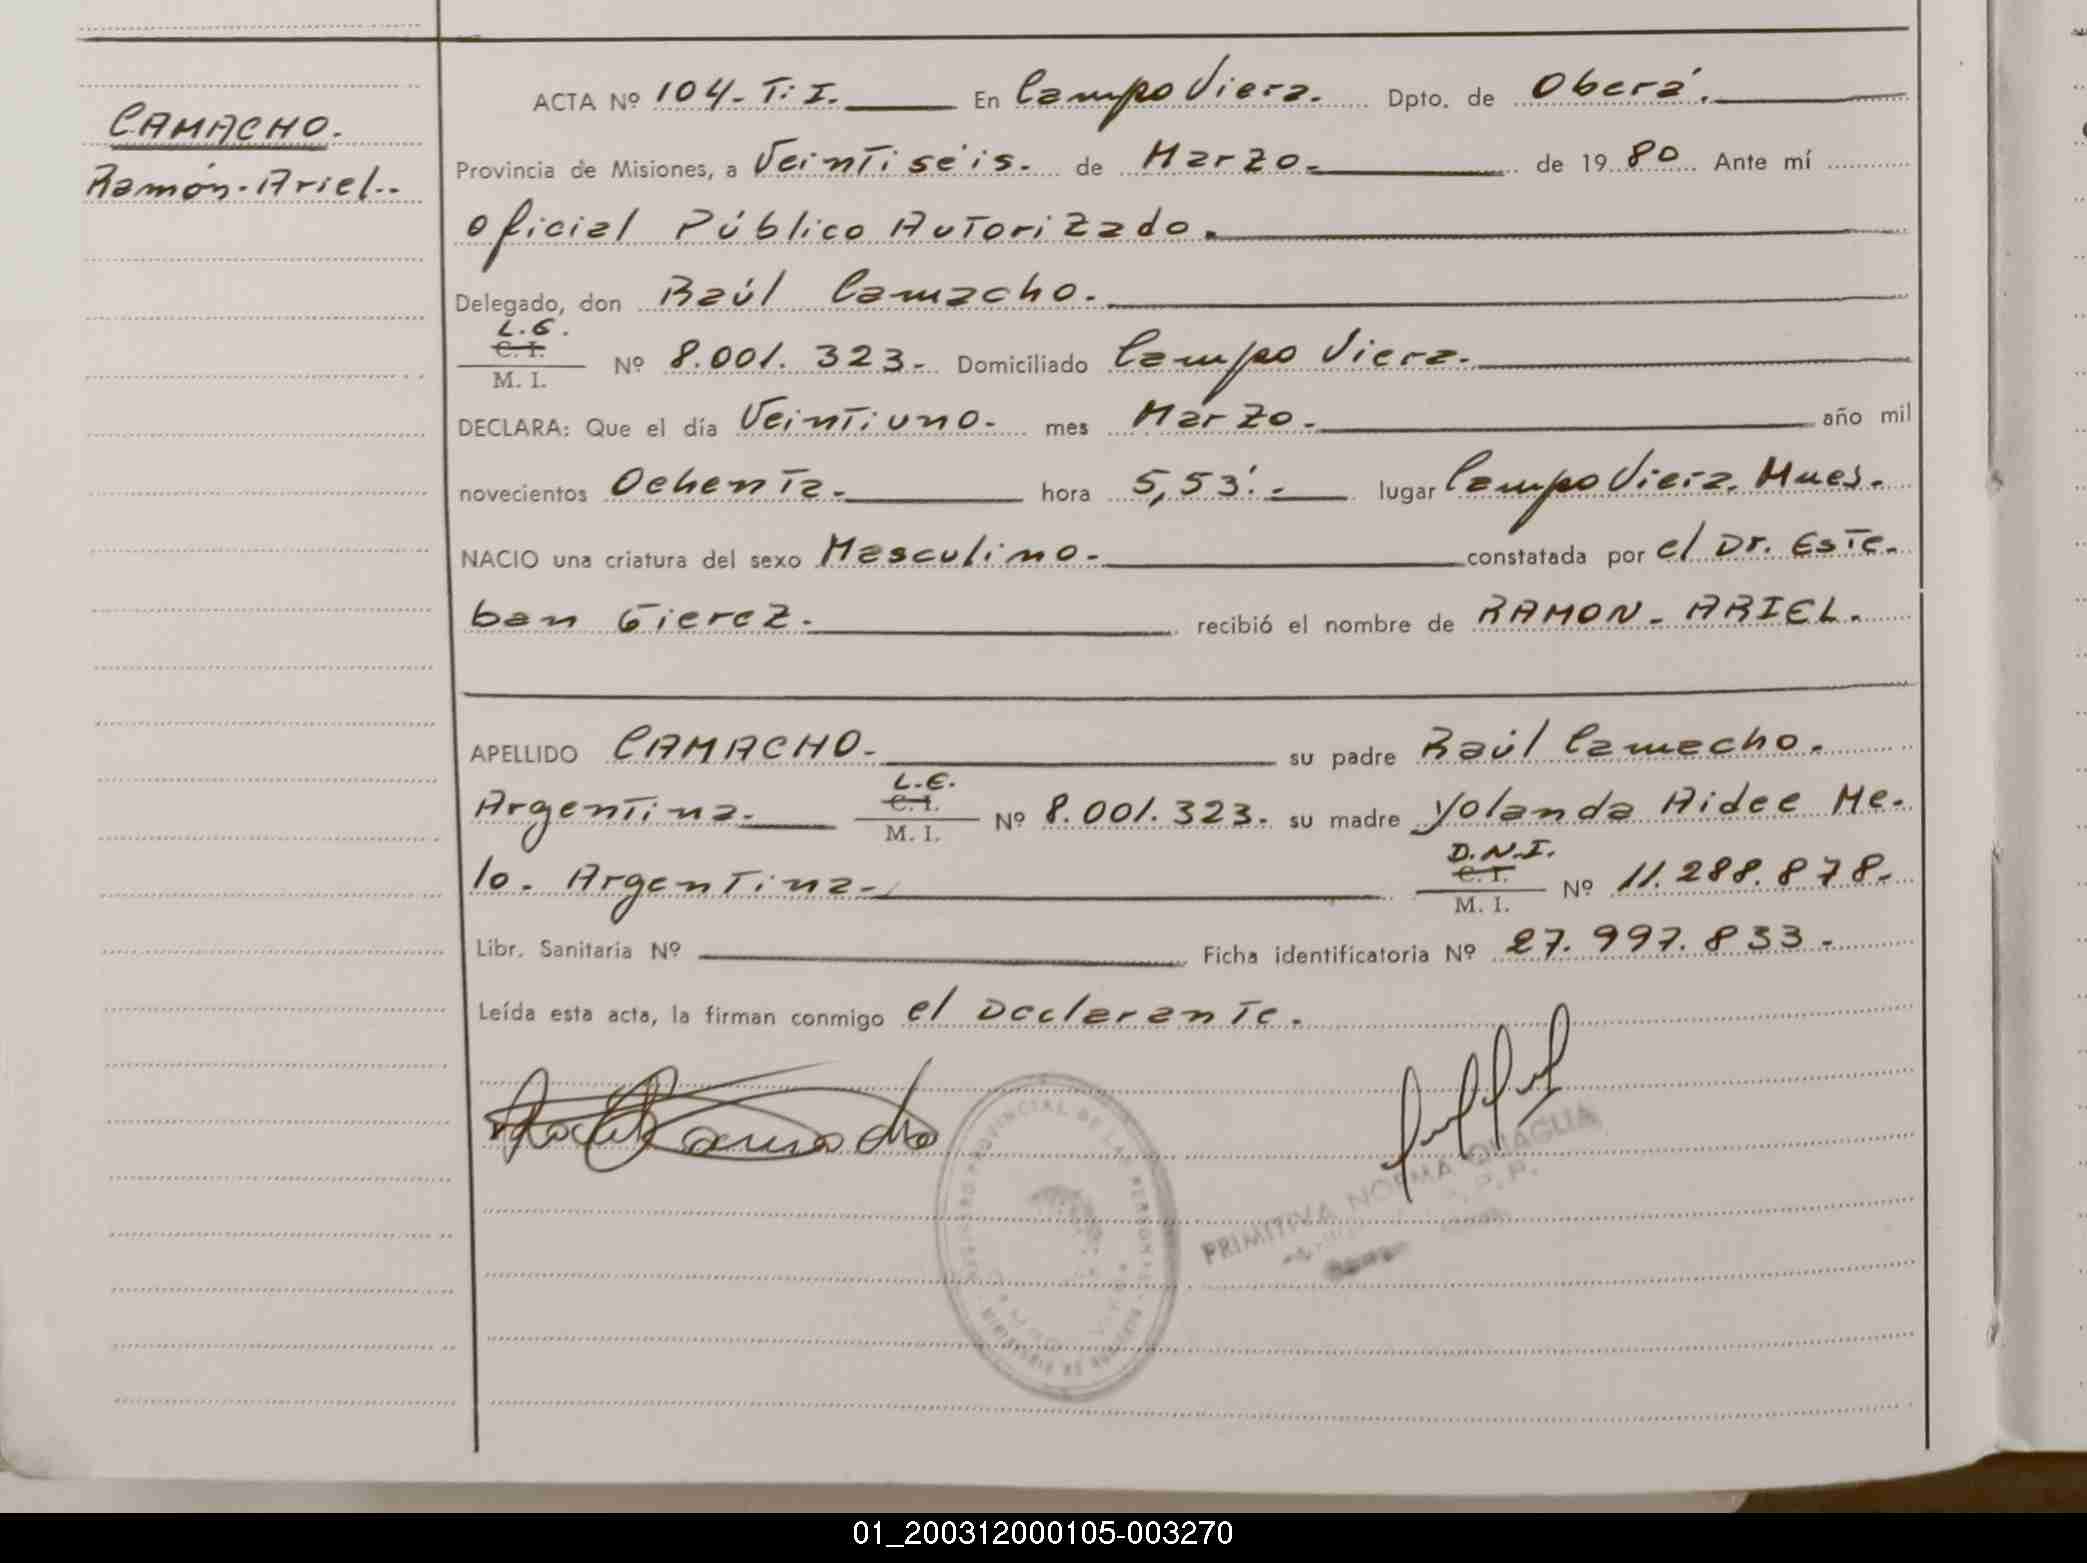 CAMACHO.
Ramón-Ariel.-
ACTA Nº 104-T.I. En Campo Viera. Dpto. de Oberá.
Provincia de Misiones, a Veintiséis. de Marzo. de 19 80 Ante mí
Oficial Público Autorizado.
Delegado, don Raúl Camacho.
L.E.
C. I.
M. I. Nº 8.001.323.- Domiciliado Campo Viera.
DECLARA: Que el día Veintiuno.- mes Marzo. año mil
novecientos Ochenta. hora 5,53'.- lugar Campo Viera. Mnes.
NACIO una criatura del sexo Masculino.- constatada por el Dr. Este-
ban Gierez. recibió el nombre de RAMON-ARIEL.
APELLIDO CAMACHO.- su padre Raúl Camacho.
L.E.
C. I.
Argentina. M. I. Nº 8.001.323. su madre Yolanda Aidee Me-
D.N.I.
C. I.
lo. Argentina.- M. I. Nº 11.288.878.
Libr. Sanitaria Nº Ficha identificatoria Nº 27.997.833.-
Leída esta acta, la firman conmigo el Declarante.
Camacho
REGISTRO PROVINCIAL DE LAS PERSONAS
CAMPO VIERA
MINISTERIO DE GOBIERNO
PRIMITIVA NORMA QUAGLIA
01_200312000105-003270